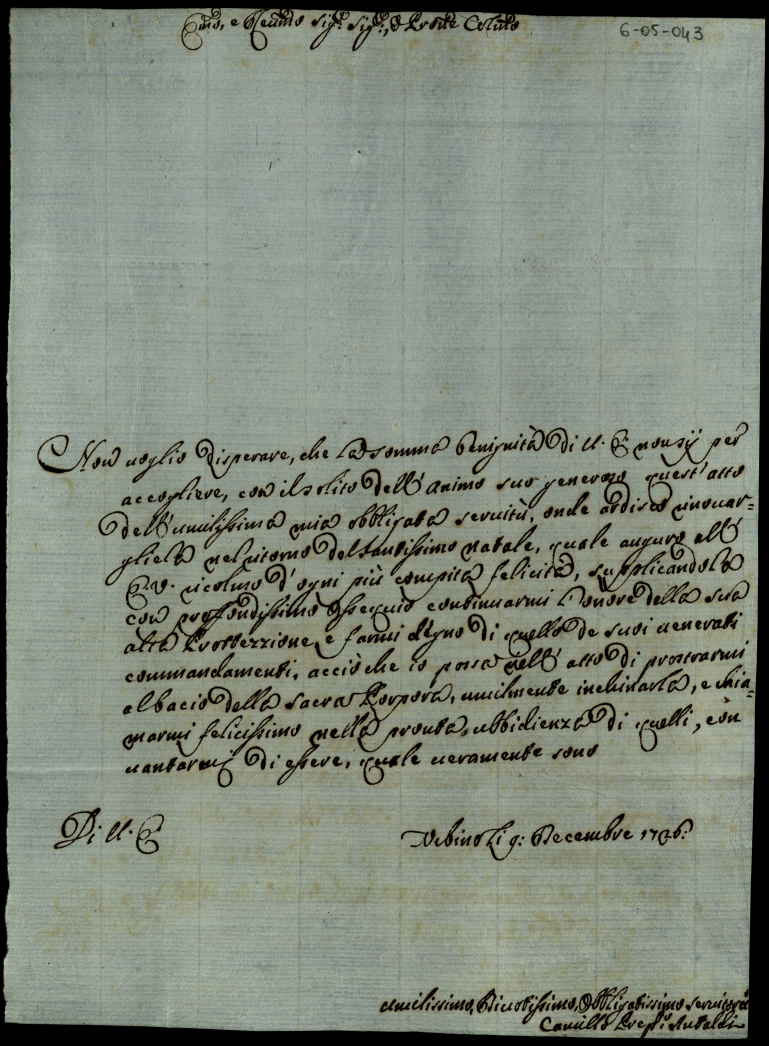 Emo, e Revmo Sigr. Sigr., e Prone Colmo
6-05-043
Non voglio disperare, che la somma benignità di V. E. non sij per
accogliere, con il solito dell'animo suo generoso quest'atto
dell'umilissima mia obbligata servitù, onde ardisco rinovar=
gliela nel ritorno del Santissimo Natale, quale auguro all'
E. V. ricolmo d'ogni più compita felicità, supplicandola
con profondissimo ossequio continuarmi l'onore della sua
alta Protezzione, e farmi degno di quello de suoi venerati
commandamenti, acciò che io possa nell'atto di prostrarmi
al bacio della Sacra Porpora, umilmente inchinarla, e chia=
marmi felicissimo nella pronta ubbidienza di quelli, con
vantarmi di essere, quale veramente sono
Di V. E.
Urbino li 9: Decembre 1736:
Umilissimo, Divotissimo, Obbligatissimo Servitore
Camillo Antaldi